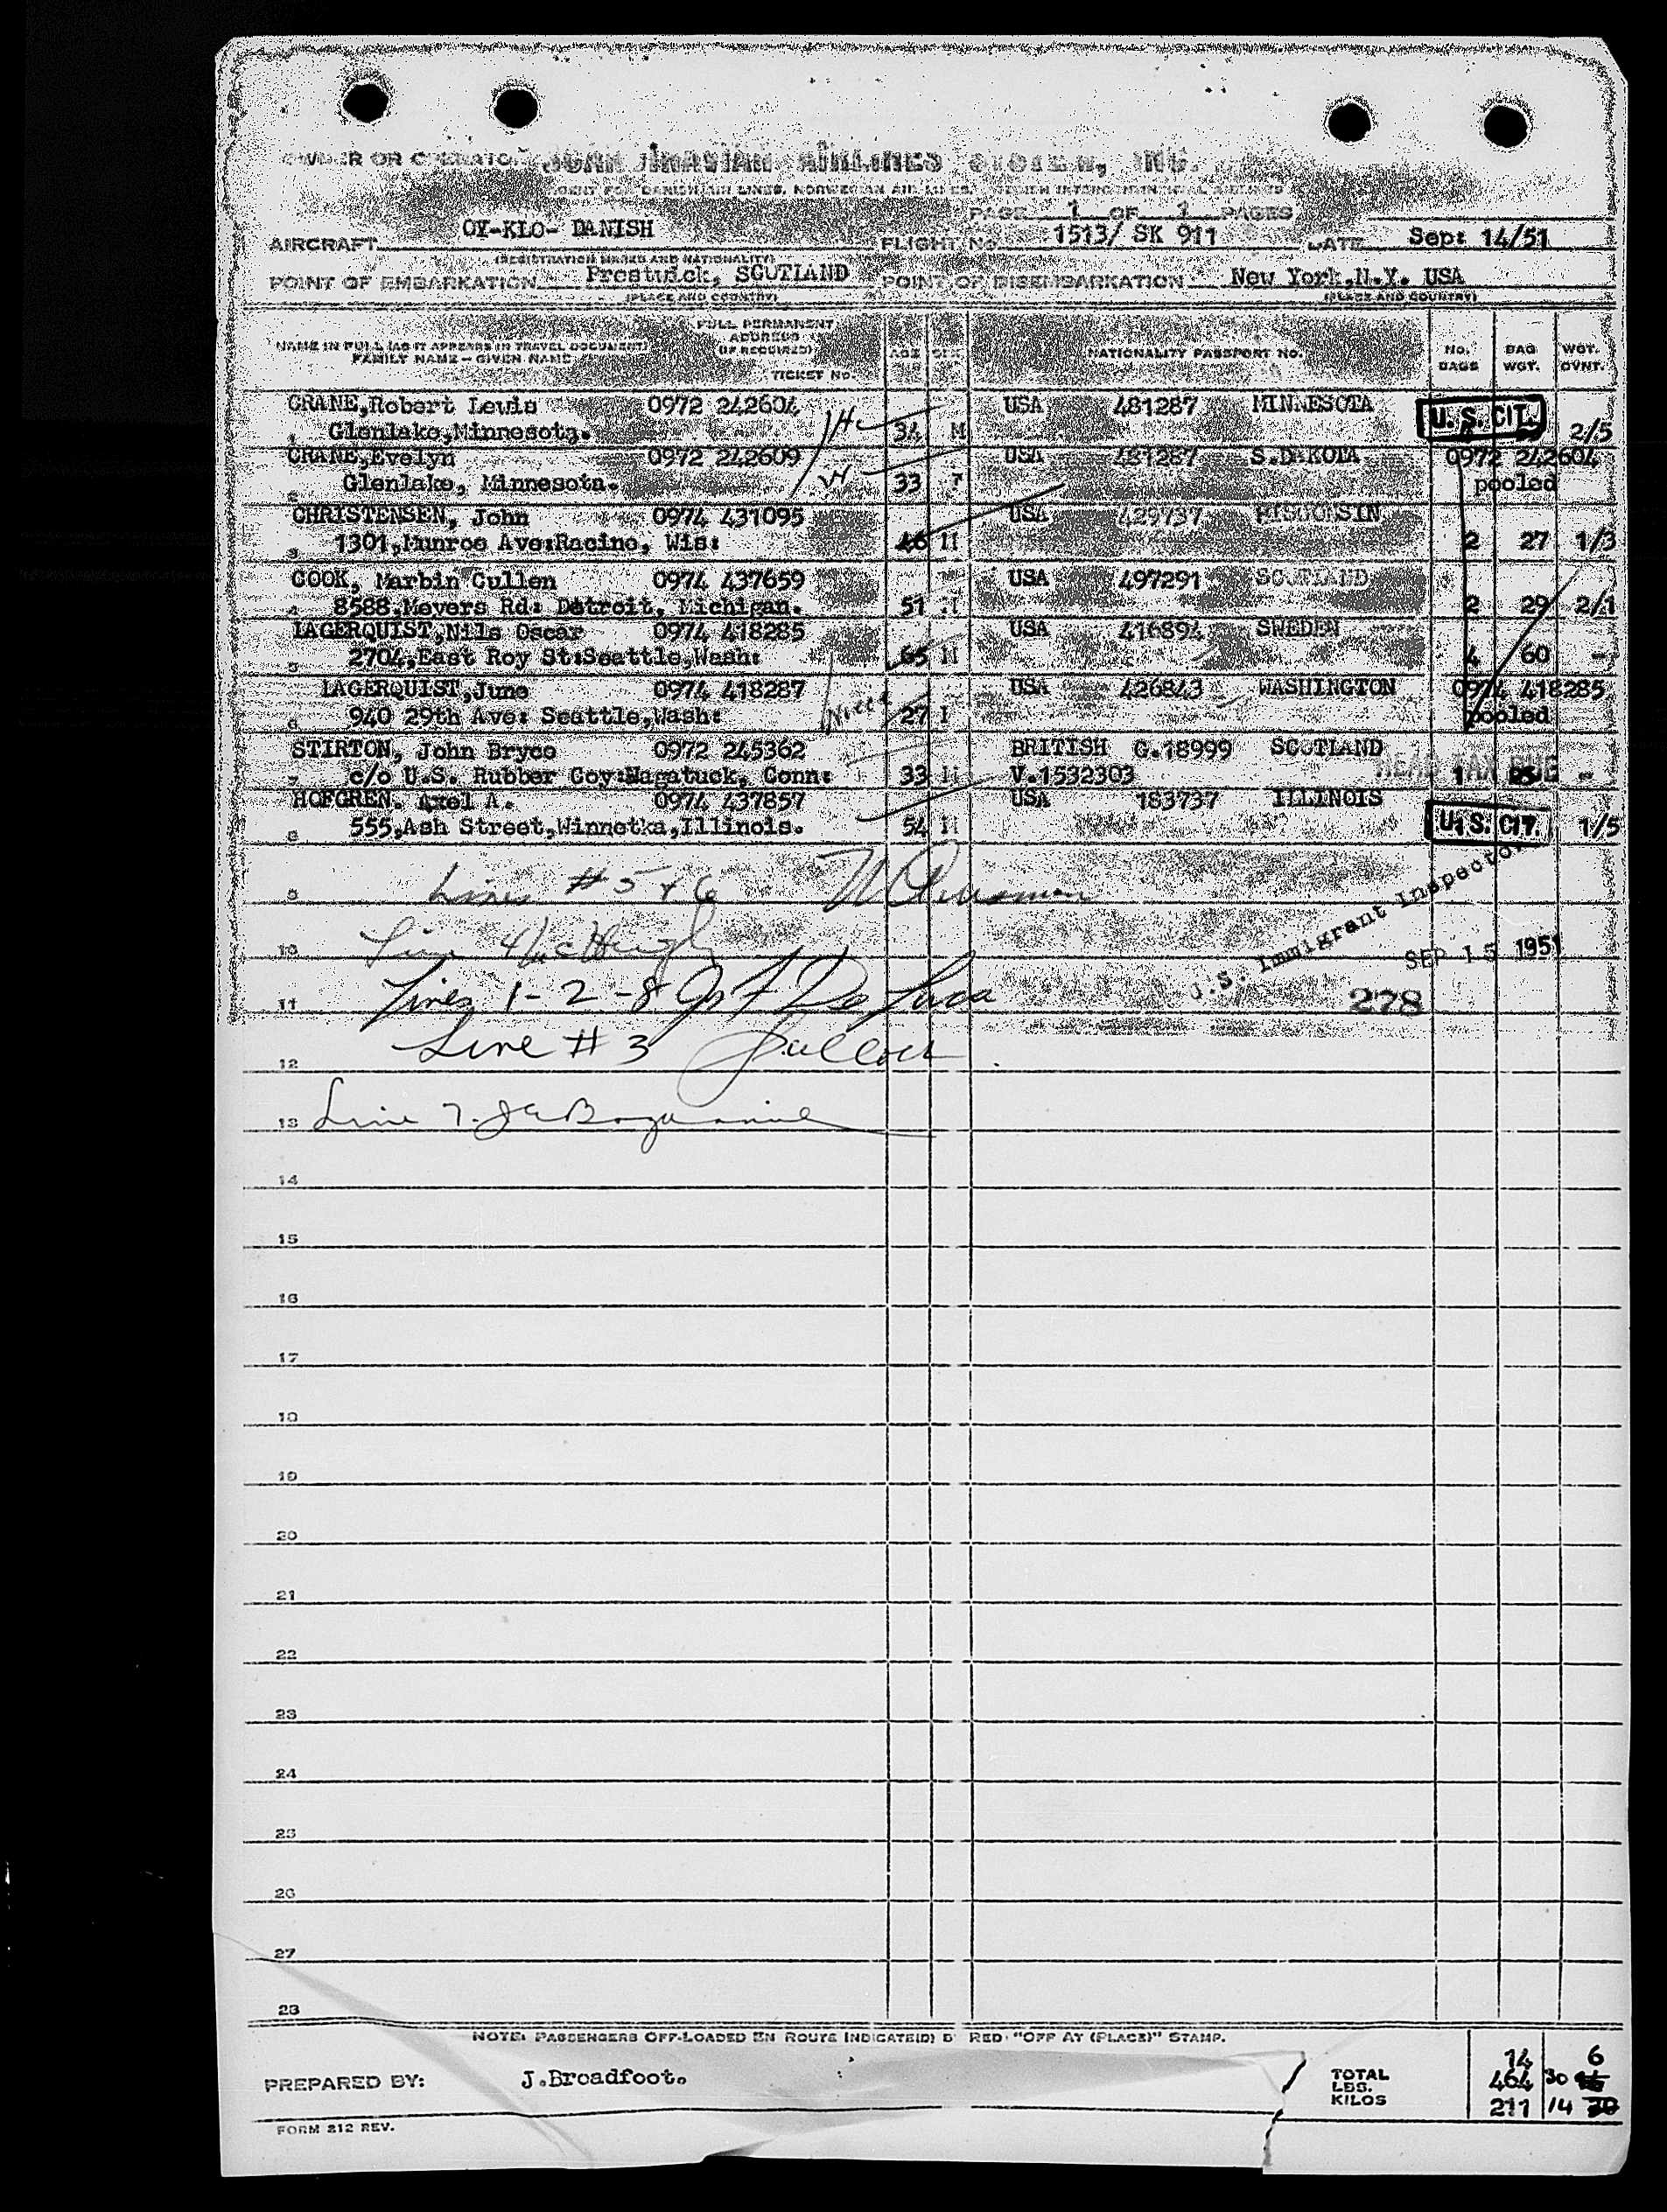 OWNER OR OPERATOR SCANDINAVIAN AIRLINES SYSTEM, INC.
AGENT FOR DANISH AIR LINES, NORWEGIAN AIR LINES, SWEDISH INTERCONTINENTAL AIRLINES
PAGE 1 OF 1 PAGES
AIRCRAFT OY-KLO- DANISH FLIGHT No. 1513/ SK 911 DATE Sept 14/51
(REGISTRATION MARKS AND NATIONALITY)
POINT OF EMBARKATION Prestwick, SCOTLAND POINT OF DISEMBARKATION New York.N.Y. USA
(PLACE AND COUNTRY) (PLACE AND COUNTRY)
NAME IN FULL (AS IT APPEARS IN TRAVEL DOCUMENT) FAMILY NAME – GIVEN NAME FULL PERMANENT ADDRESS (IF REQUIRED) TICKET No. AGE SEX NATIONALITY PASSPORT NO. NO. BAGS BAG WGT. WGT. OVNT.
CRANE,Robert Lewis 0972 242604 USA 481287 MINNESOTA U. S. CIT.
1 Glenlake,Minnesota. 34 M 2/5
CRANE,Evelyn 0972 242609 USA 481287 S.DAKOTA 0972 242604
2 Glenlake, Minnesota. 33 F pooled
CHRISTENSEN, John 0974 431095 USA 429737 WISCONSIN
3 1301,Munroe Ave:Racine, Wis: 46 M 2 27 1/3
COOK, Marbin Cullen 0974 437659 USA 497291 SCOTLAND
4 8588.Meyers Rd: Detroit, Michigan. 51 2 29 2/1
LAGERQUIST,Nils Oscar 0974 418285 USA 416894 SWEDEN
5 2704,East Roy St:Seattle,Wash: 65 M 4 60 -
LAGERQUIST,June 0974 418287 USA 426843 WASHINGTON 0974 418285
6 940 29th Ave: Seattle,Wash: 27 pooled
STIRTON, John Bryce 0972 245362 BRITISH G.18999 SCOTLAND
7 c/o U.S. Rubber Coy:Nagatuck, Conn: 33 M V.1532303 HEAD TAX DUE 1 -
HOFGREN. Axel A. 0974 437857 USA 183737 ILLINOIS
8 555,Ash Street,Winnetka,Illinois. 54 M U. S. CIT. 1/5
9 Lines #5 + 6
10 Line 4 McHugh
U.S. Immigrant Inspector
SEP 15 1951
11 Lines 1-2-8 De Luca 278
12 Line #3
13 Line 7.
14
15
16
17
18
19
20
21
22
23
24
25
26
27
28
NOTE: PASSENGERS OFF-LOADED EN ROUTE INDICATE(D) BY RED "OFF AT (PLACE)" STAMP.
14 6
PREPARED BY: J.Broadfoot. TOTAL LBS. 464 30
KILOS 211 14
FORM 212 REV.